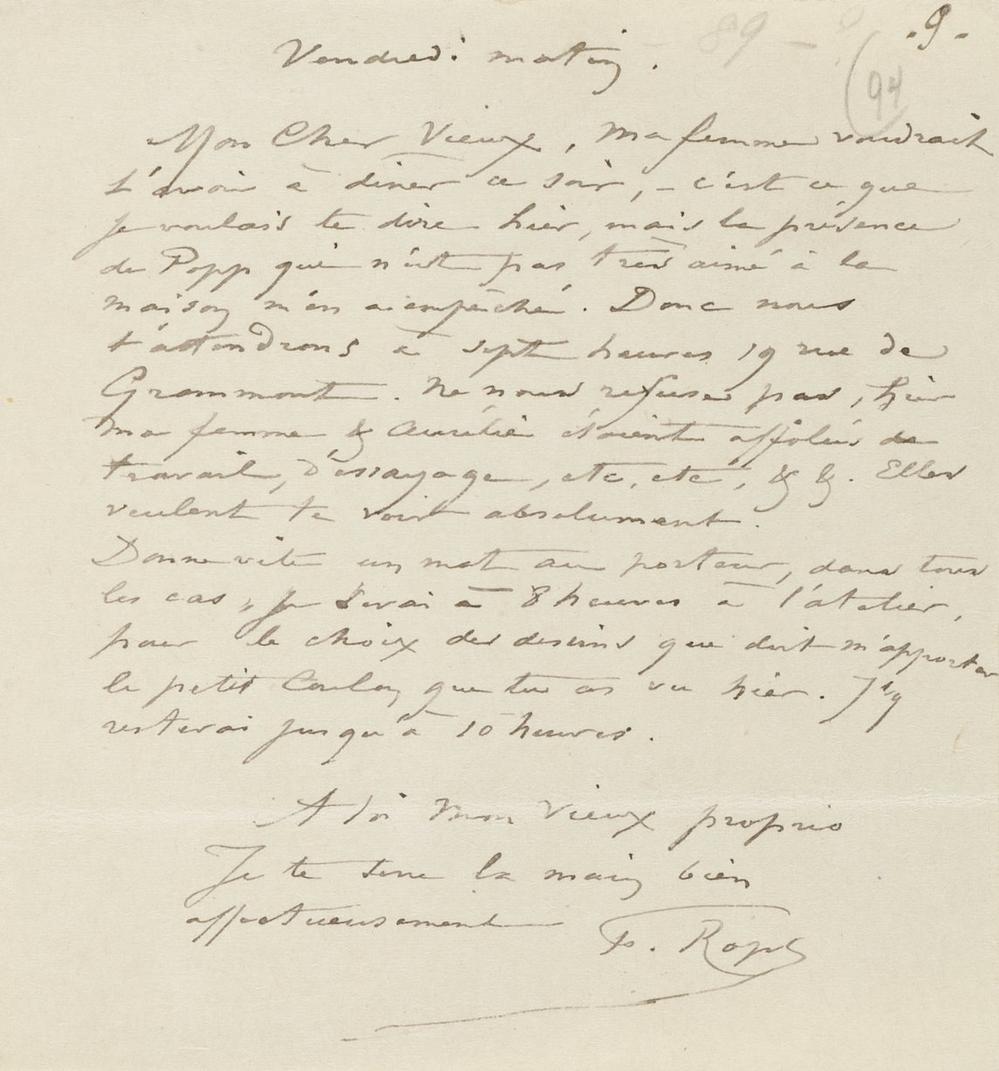 89 -
. 9 .
(94
Vendredi matin .
Mon Cher Vieux, Ma femme voudrait
t'avoir à diner ce soir, – c'est ce que
je voulais te dire hier, mais la présence
de Popp qui n'est pas très aimé à la
maison m'en a empêché. Donc nous
t'attendrons à sept heures 19 rue de
Grammont. Ne nous refuses pas, hier
ma femme & Aurélie étaient affolées de
travail, d'essayage, etc, etc, & &. Elles
veulent te voir absolument.
Donne vite un mot au porteur, dans tous
les cas, je serai à 8 heures à l'atelier,
pour le choix des dessins que doit m'apporter
le petit Coulon que tu as vu hier. J'y
resterai jusqu'à 10 heures.
A toi mon vieux proprio
Je te serre la main bien
affectueusement F. Rops